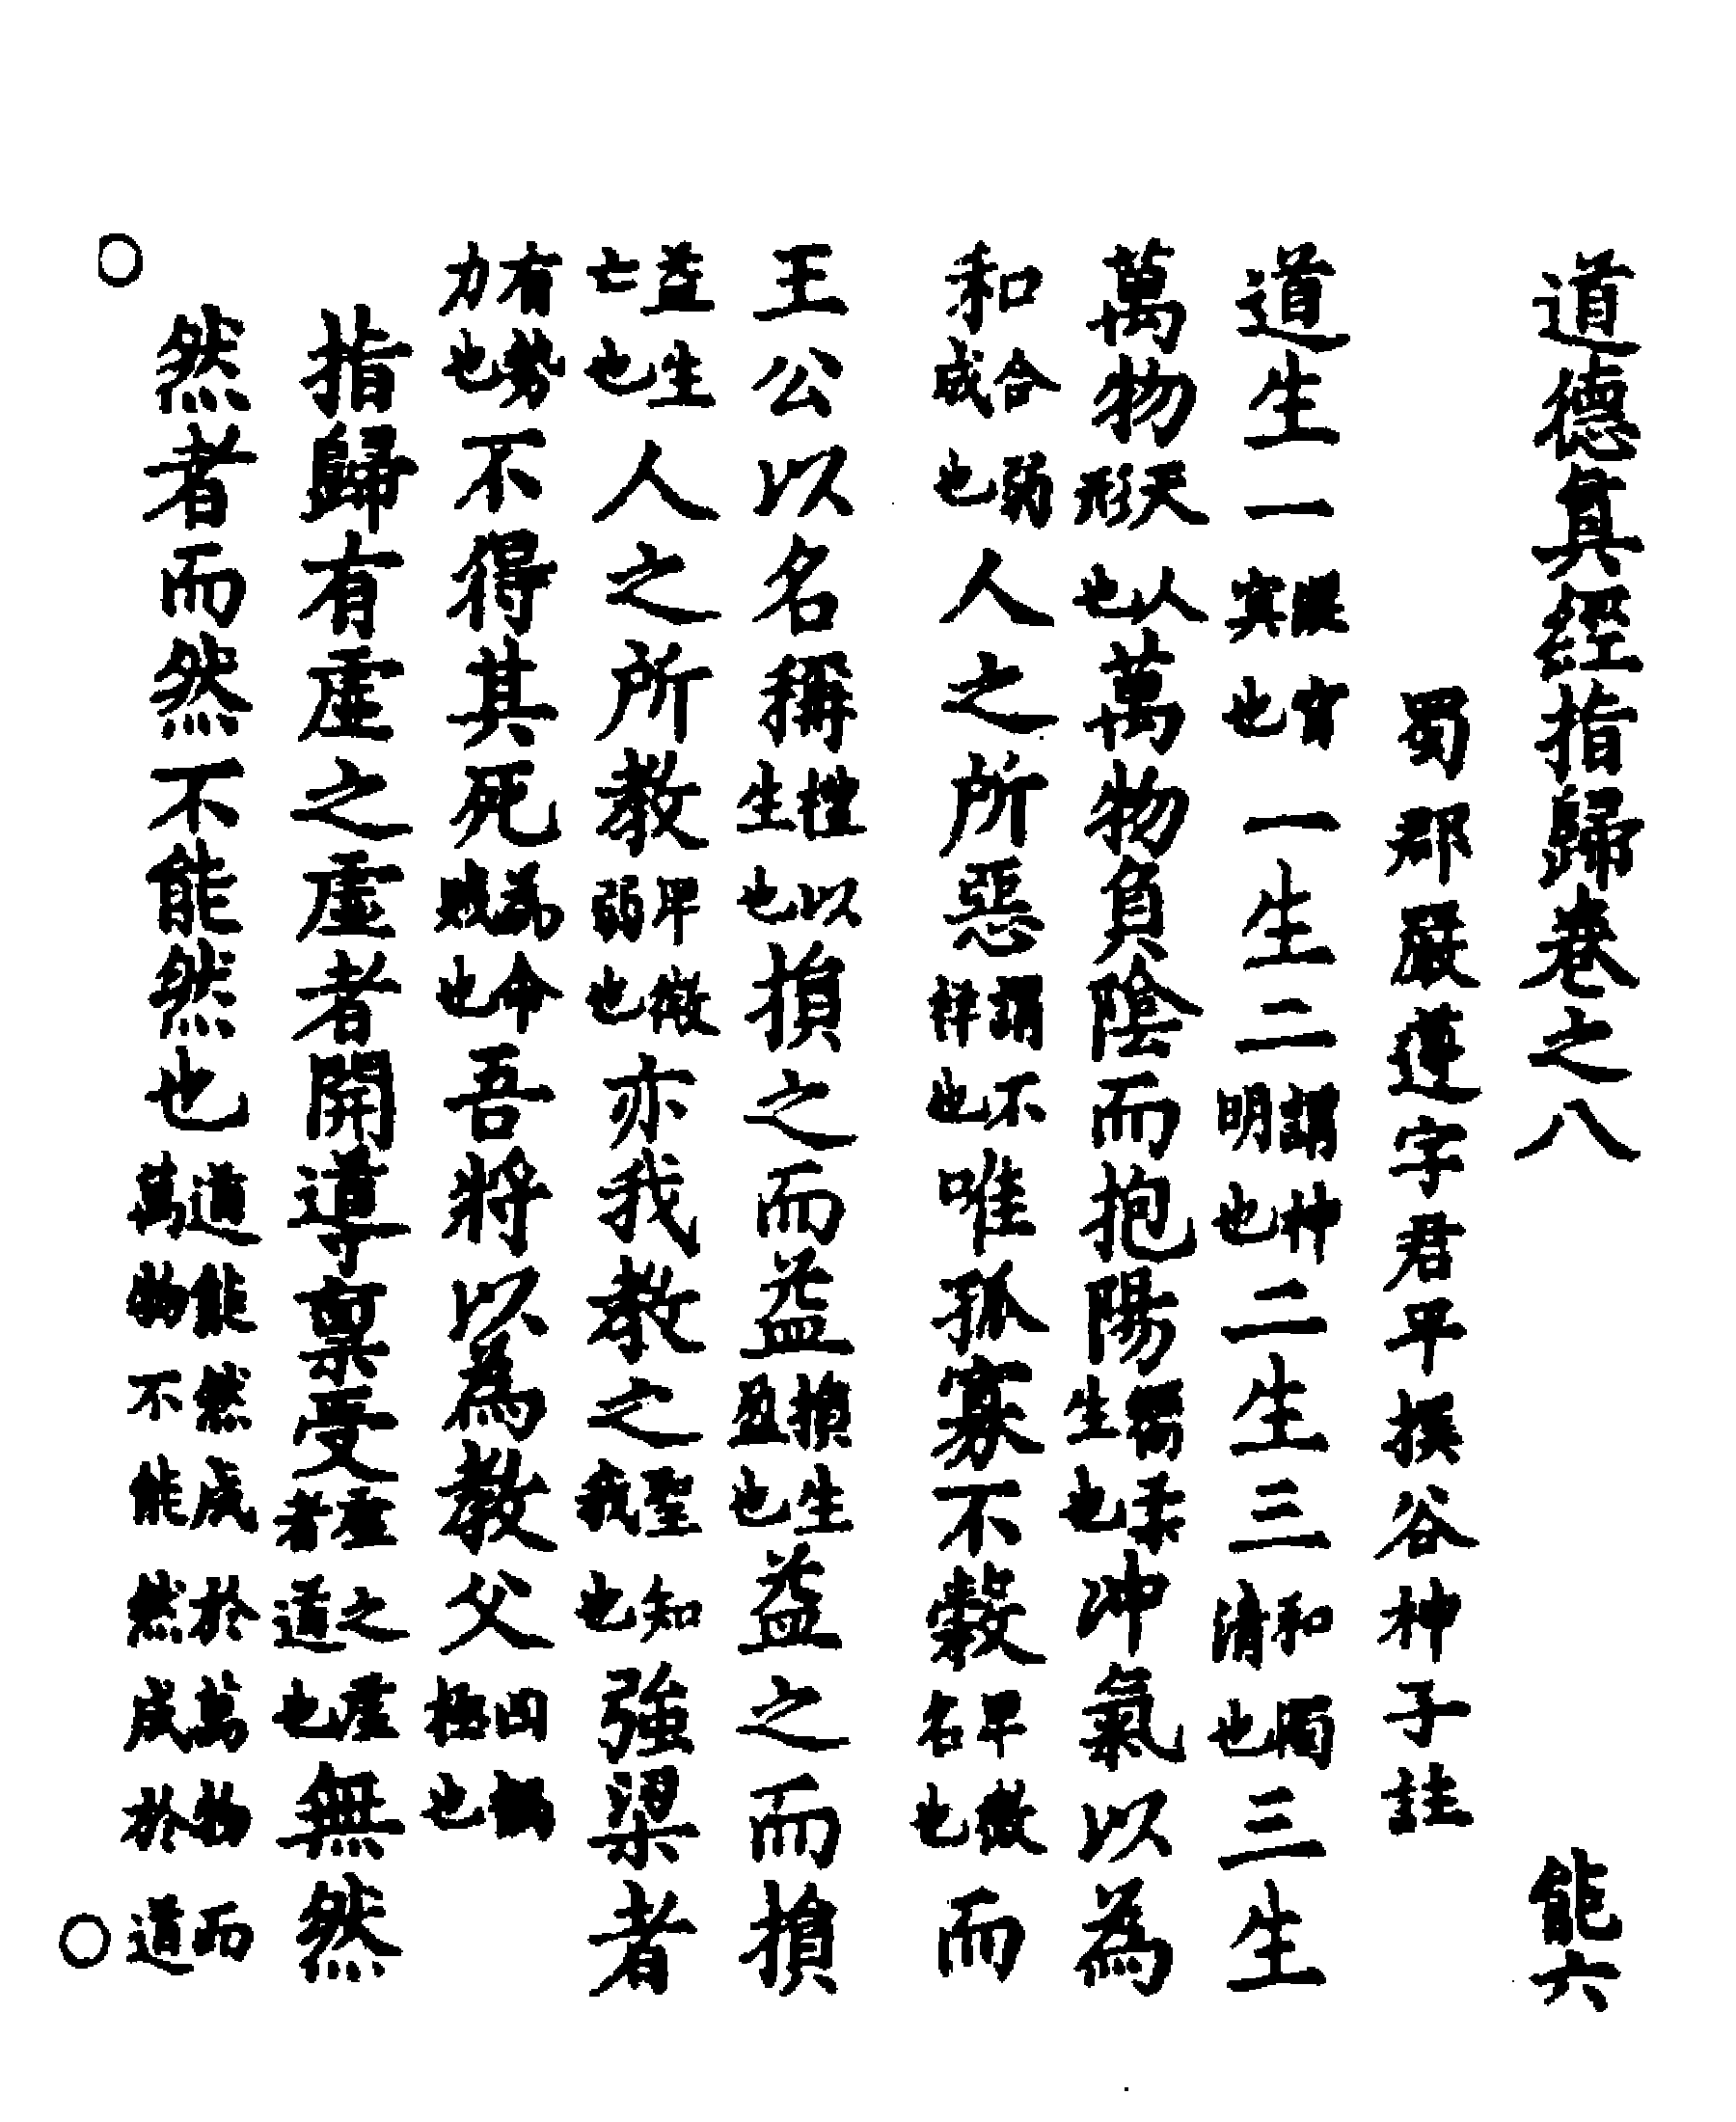 道德真經指歸卷之八 能六
蜀郡嚴遵字君平撰谷神子註
道生一窅冥也一生二謂神明也二生三和濁清也三生
萬物天人形也萬物負陰而抱陽柔生也冲氣以為
和合弱成也人之所惡謂不祥也唯孤寡不穀卑微名也而
王公以名稱以生也損之而益損生盈也益之而損
益生亡也人之所教卑微弱也亦我教之聖知我也強梁者
有勢力也不得其死為命賊也吾將以為教父凶禍極也
指歸有虛之虛者開導稟受虛之虛者道也無然
然者而然不能然也道能然成於萬物而萬物不能然成於道